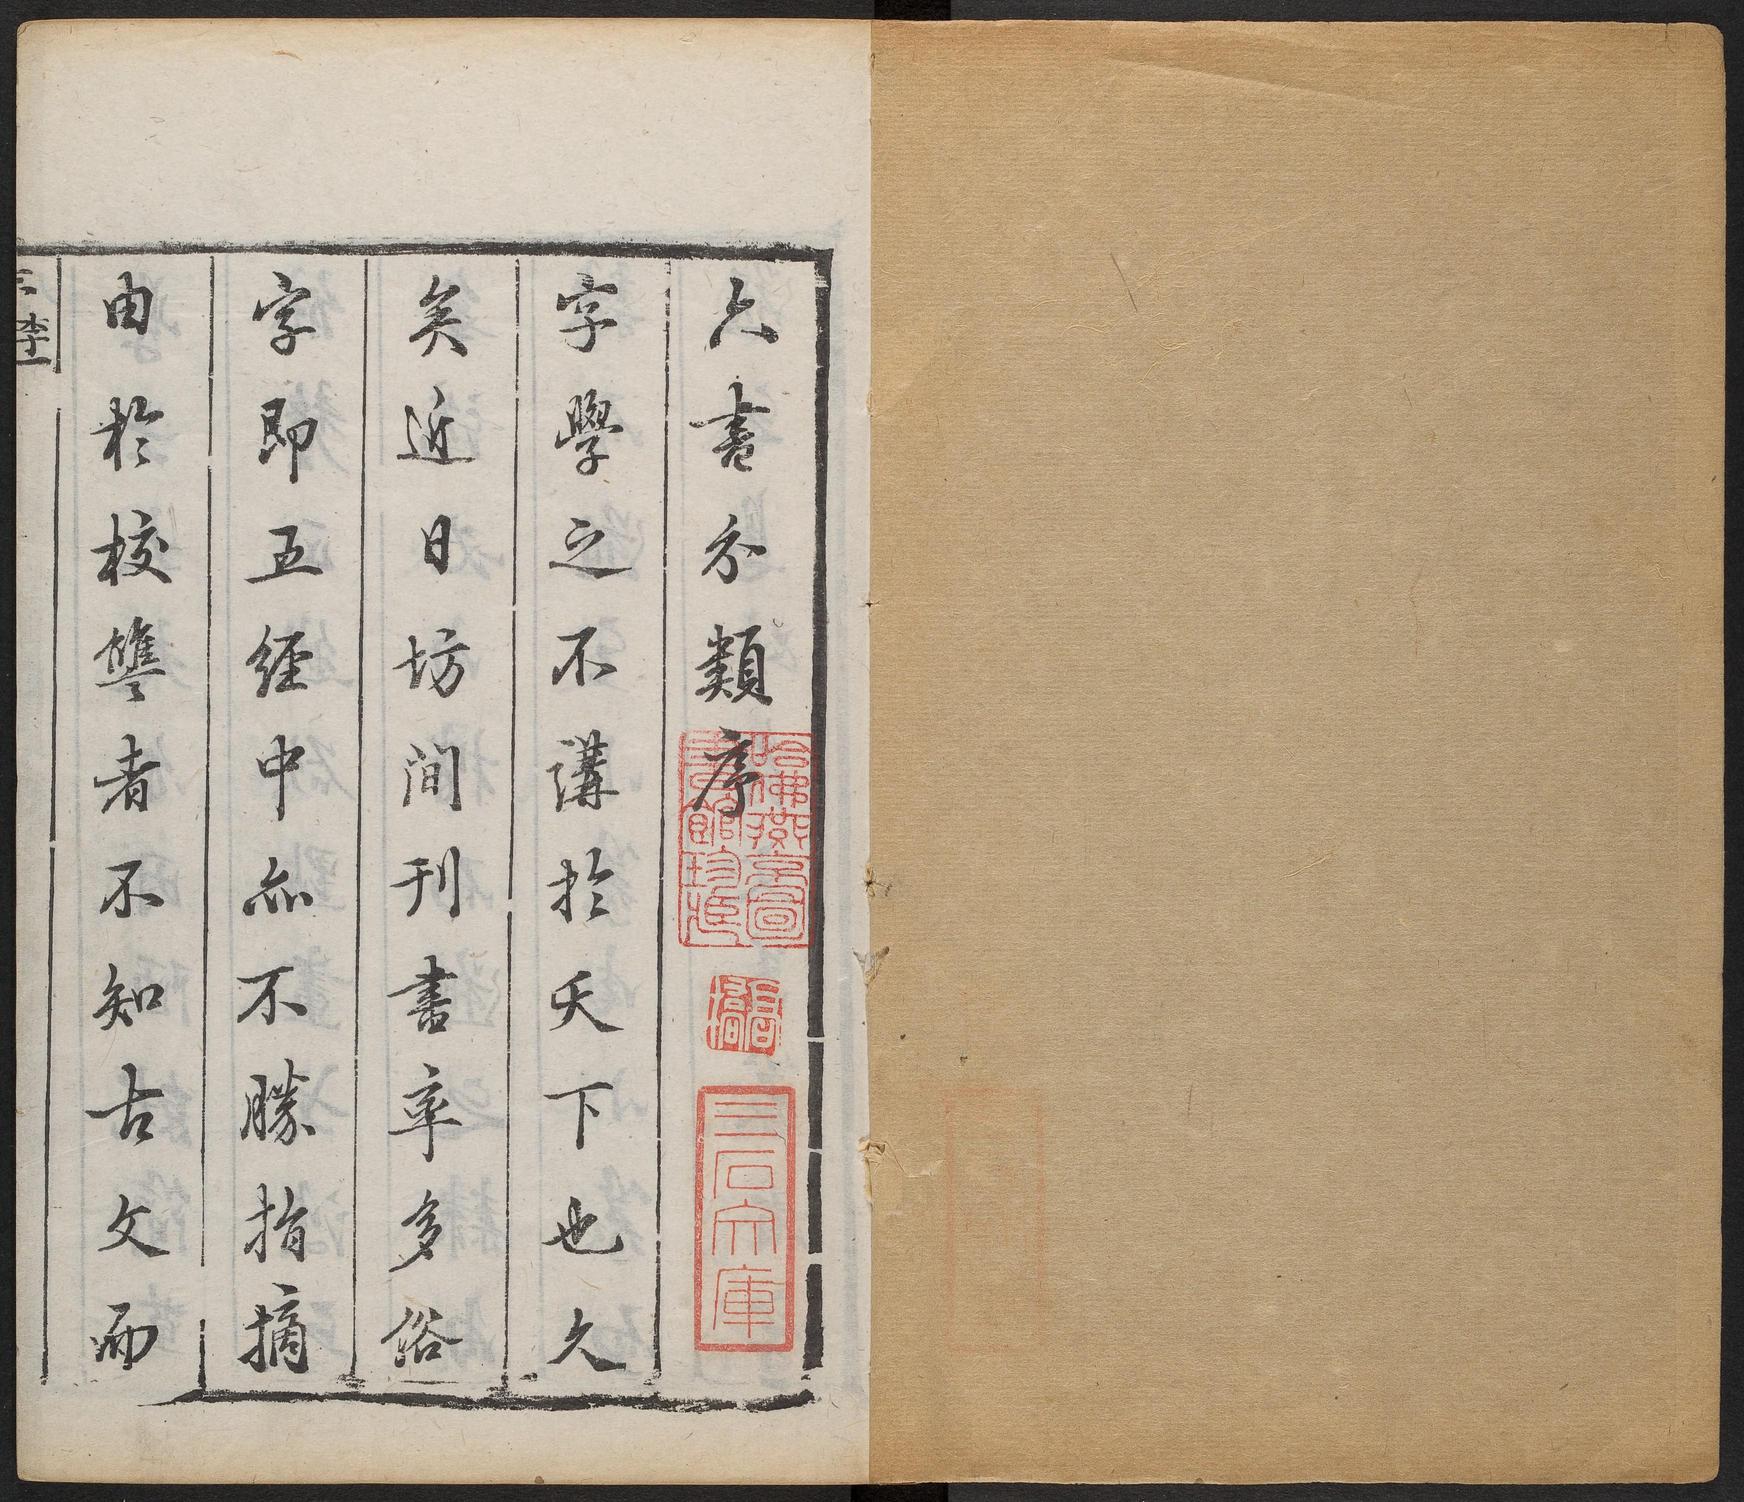 六書分類序
字學之不講扵天下也久
矣近日坊间刊書率多俗
字即五經中亦不勝指摘
由扵校讐者不知古文而
哈佛燕京圖書館珍藏
三石文庫
李一